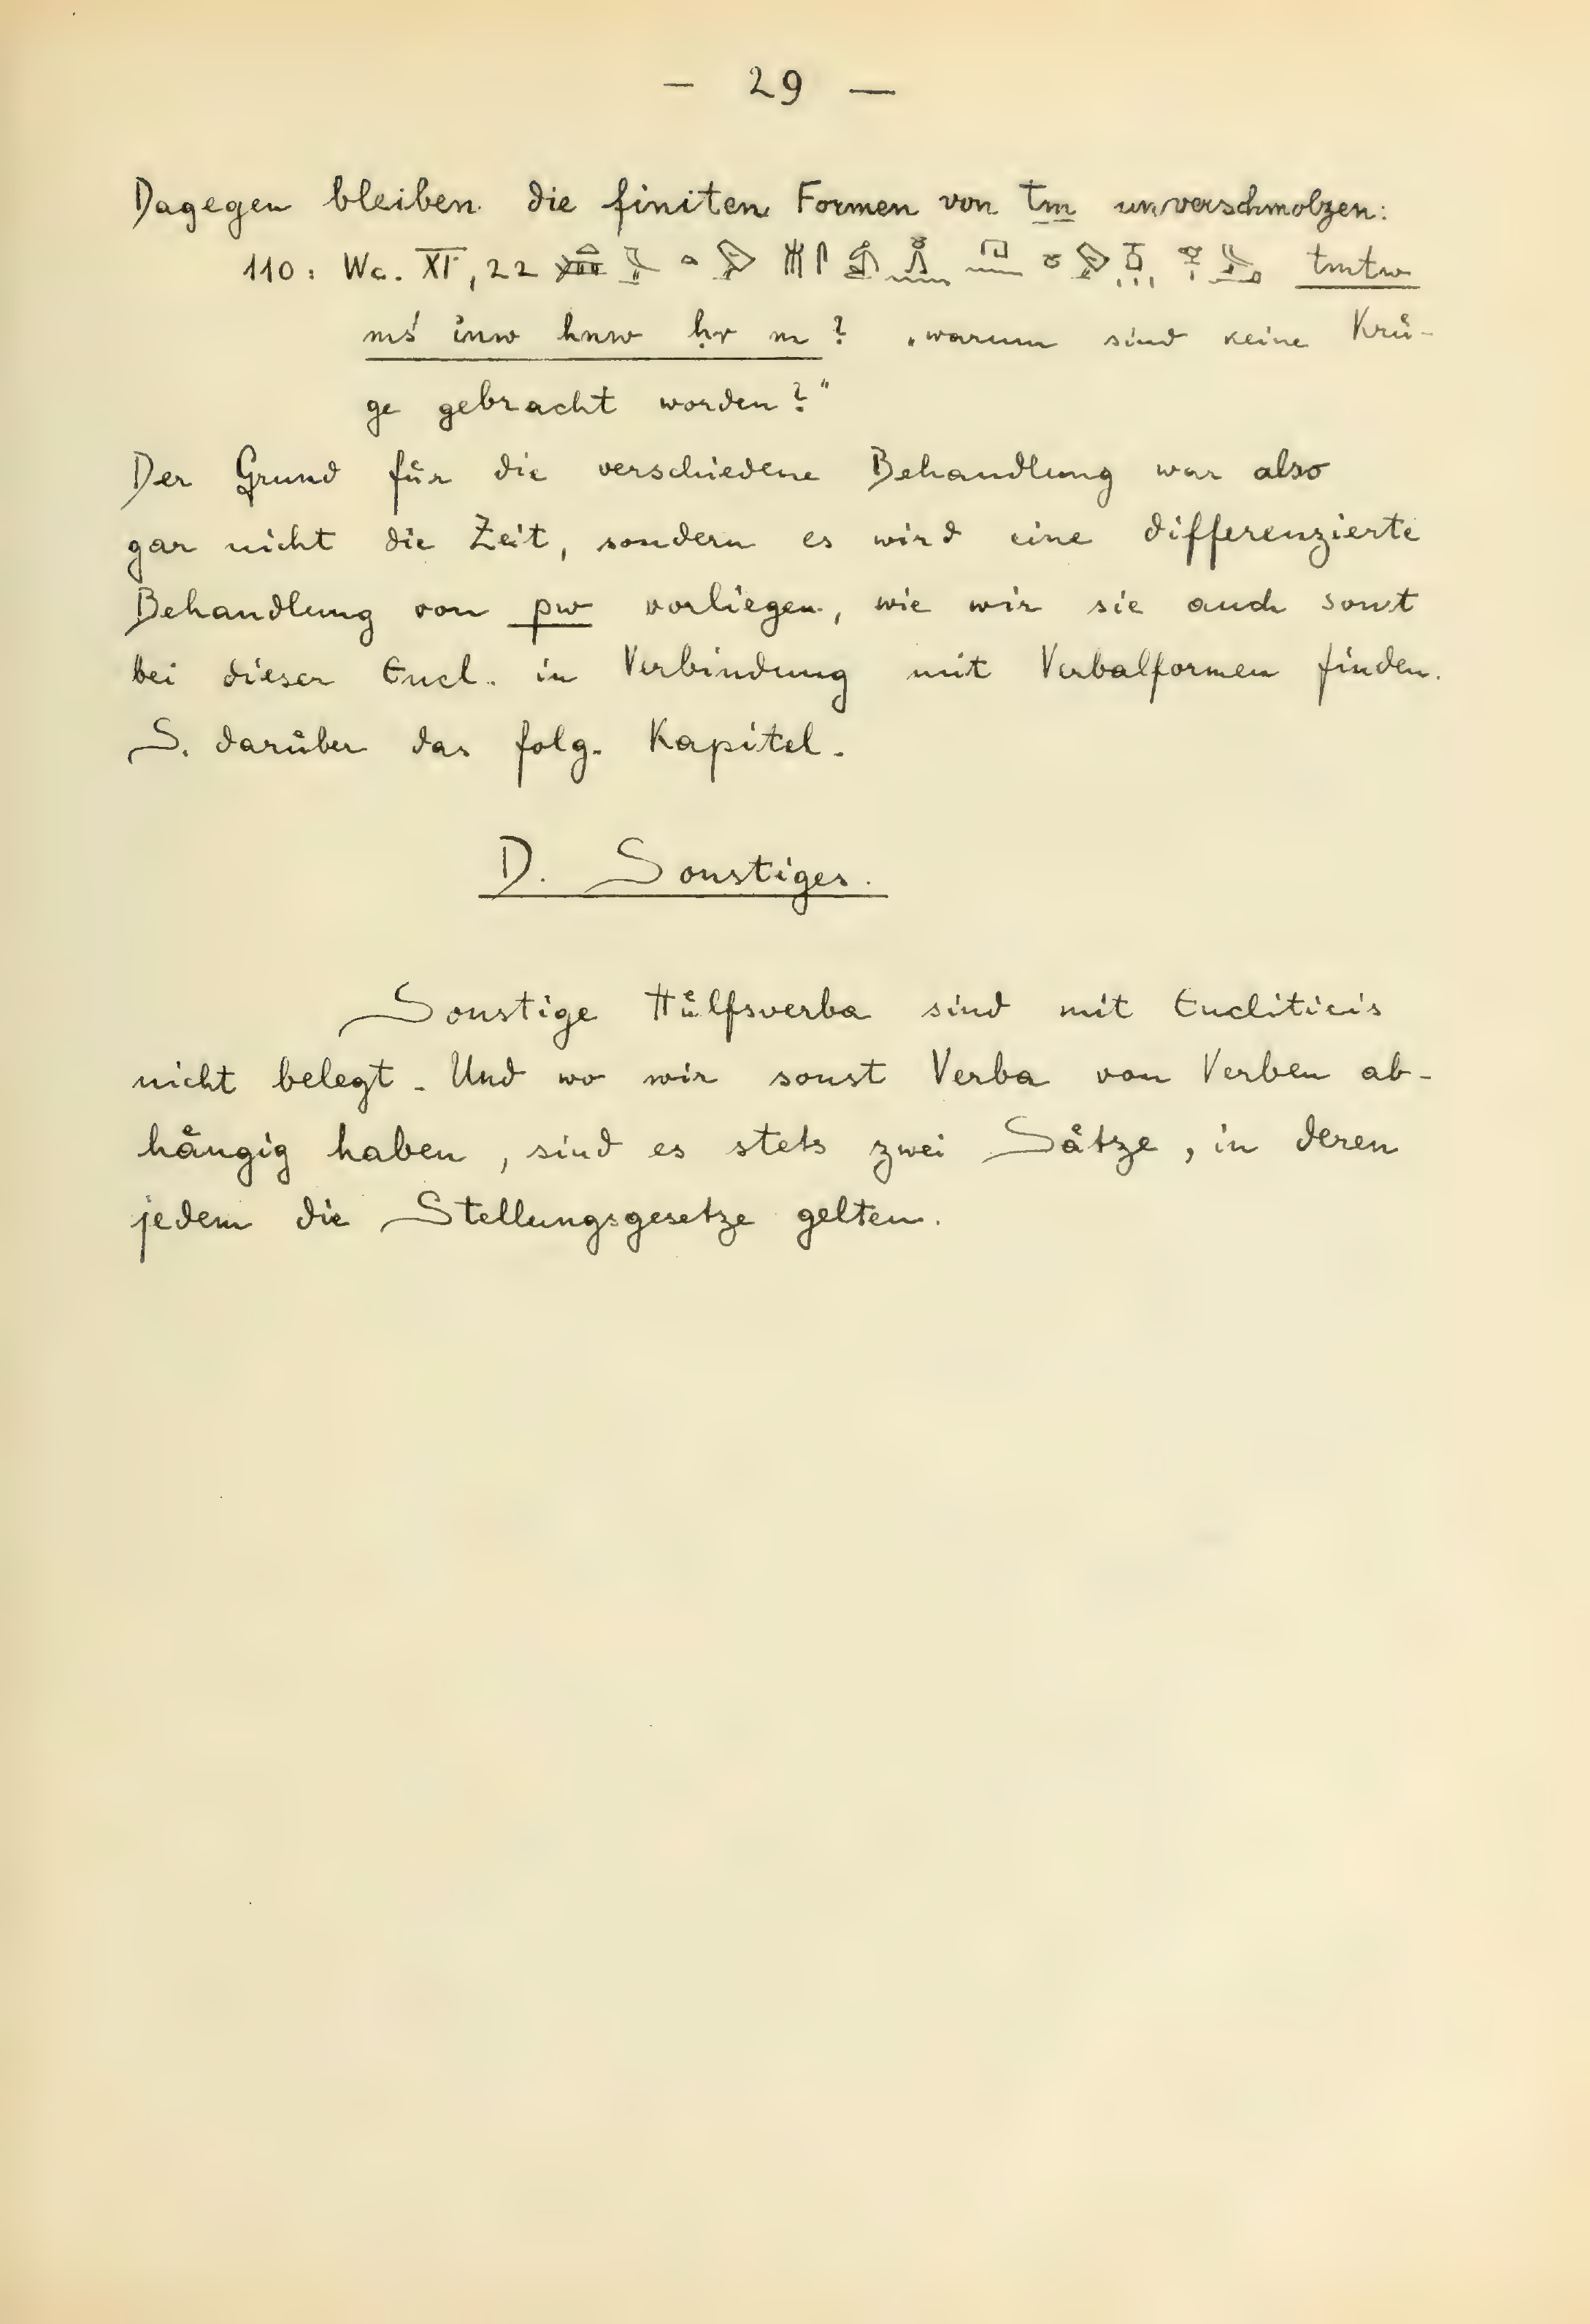 — 29 —
Dagegen bleiben die finiten Formen von tm unverschmolzen:
110: Wc. XI, 22 tmtw
mś inw hnw ḥr m? „warum sind keine Krü-
ge gebracht worden?"
Der Grund für die verschiedene Behandlung war also
gar nicht die Zeit, sondern es wird eine differenzierte
Behandlung von pw vorliegen, wie wir sie auch sonst
bei dieser Encl. in Verbindung mit Verbalformen finden.
S. darüber das folg. Kapitel.
D. Sonstiges.
Sonstige Hülfsverba sind mit Encliticis
nicht belegt. Und wo wir sonst Verba von Verben ab-
hängig haben, sind es stets zwei Sätze, in deren
jedem die Stellungsgesetze gelten.